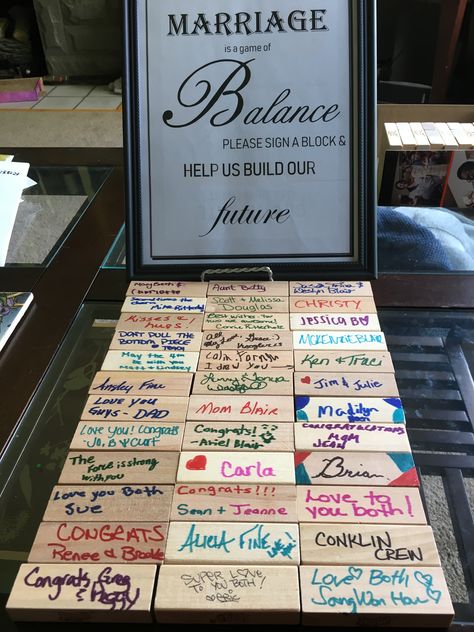 MARRIAGE
is a game of
Balance
PLEASE SIGN A BLOCK &
HELP US BUILD OUR
future
Mary Beth &
Charlotte
Aunt Betty
Scott + Melissa
Douglas
CHRISTY
Kisses &
hugs
Best wishes to
two awesome
Jessica B
DON'T PULL THE
BOTTOM PIECE
MCKENZIE BLAIR
May the 4th
be with you
Matt + Lindsey
Colin Forman
I draw you
Ken & Traci
Ansley Fine
Jim & Julie
Love you
Guys - DAD
MOM BLAIR
Madilyn
Love you! Congrats
Jo, B & Curt
Congrats!
- Ariel Blair
CONGRATULATIONS
MGM
JEAN
The force is strong
with you
Carla
Brian
Love you Both
Sue
Congrats!!!
Sean + Jeanne
Love to
you both!
CONGRATS
Renee & Brooke
ALICIA FINE
CONKLIN
CREW
Congrats, Greg
& Peggy
SUPER LOVE
TO YOU BOTH!
DEBBIE
Love Both
Sang Won Han